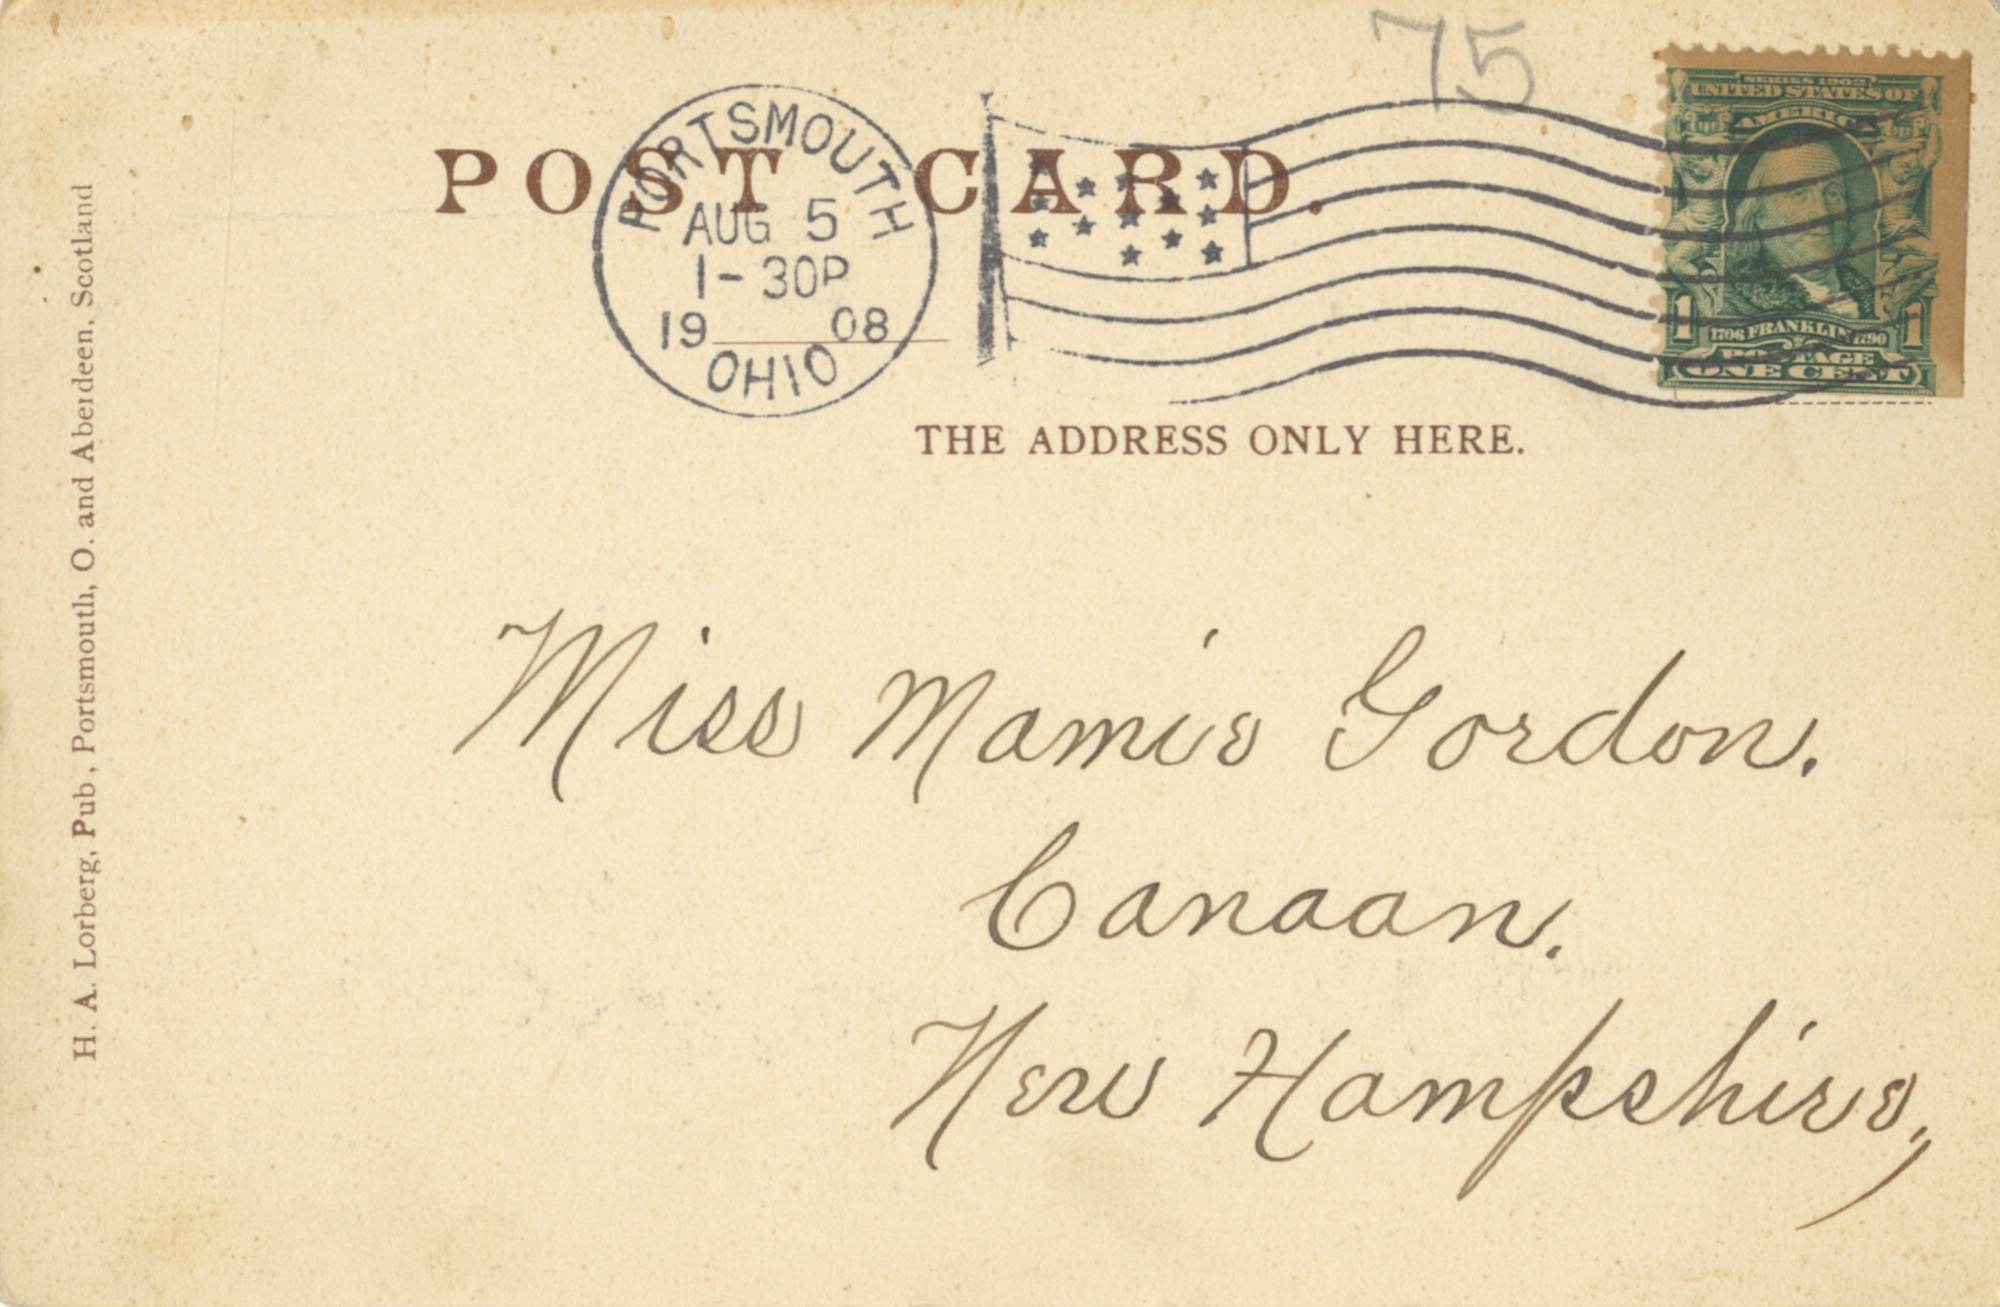 75
POST CARD.
PORTSMOUTH
AUG 5
1-30P
19 08
OHIO
SERIES 1902
UNITED STATES OF
AMERICA
1 1
1706 FRANKLIN 1790
POSTAGE
ONE CENT
THE ADDRESS ONLY HERE.
H. A. Lorberg, Pub., Portsmouth, O. and Aberdeen, Scotland
Miss Mamie Gordon.
Canaan.
New Hampshire,